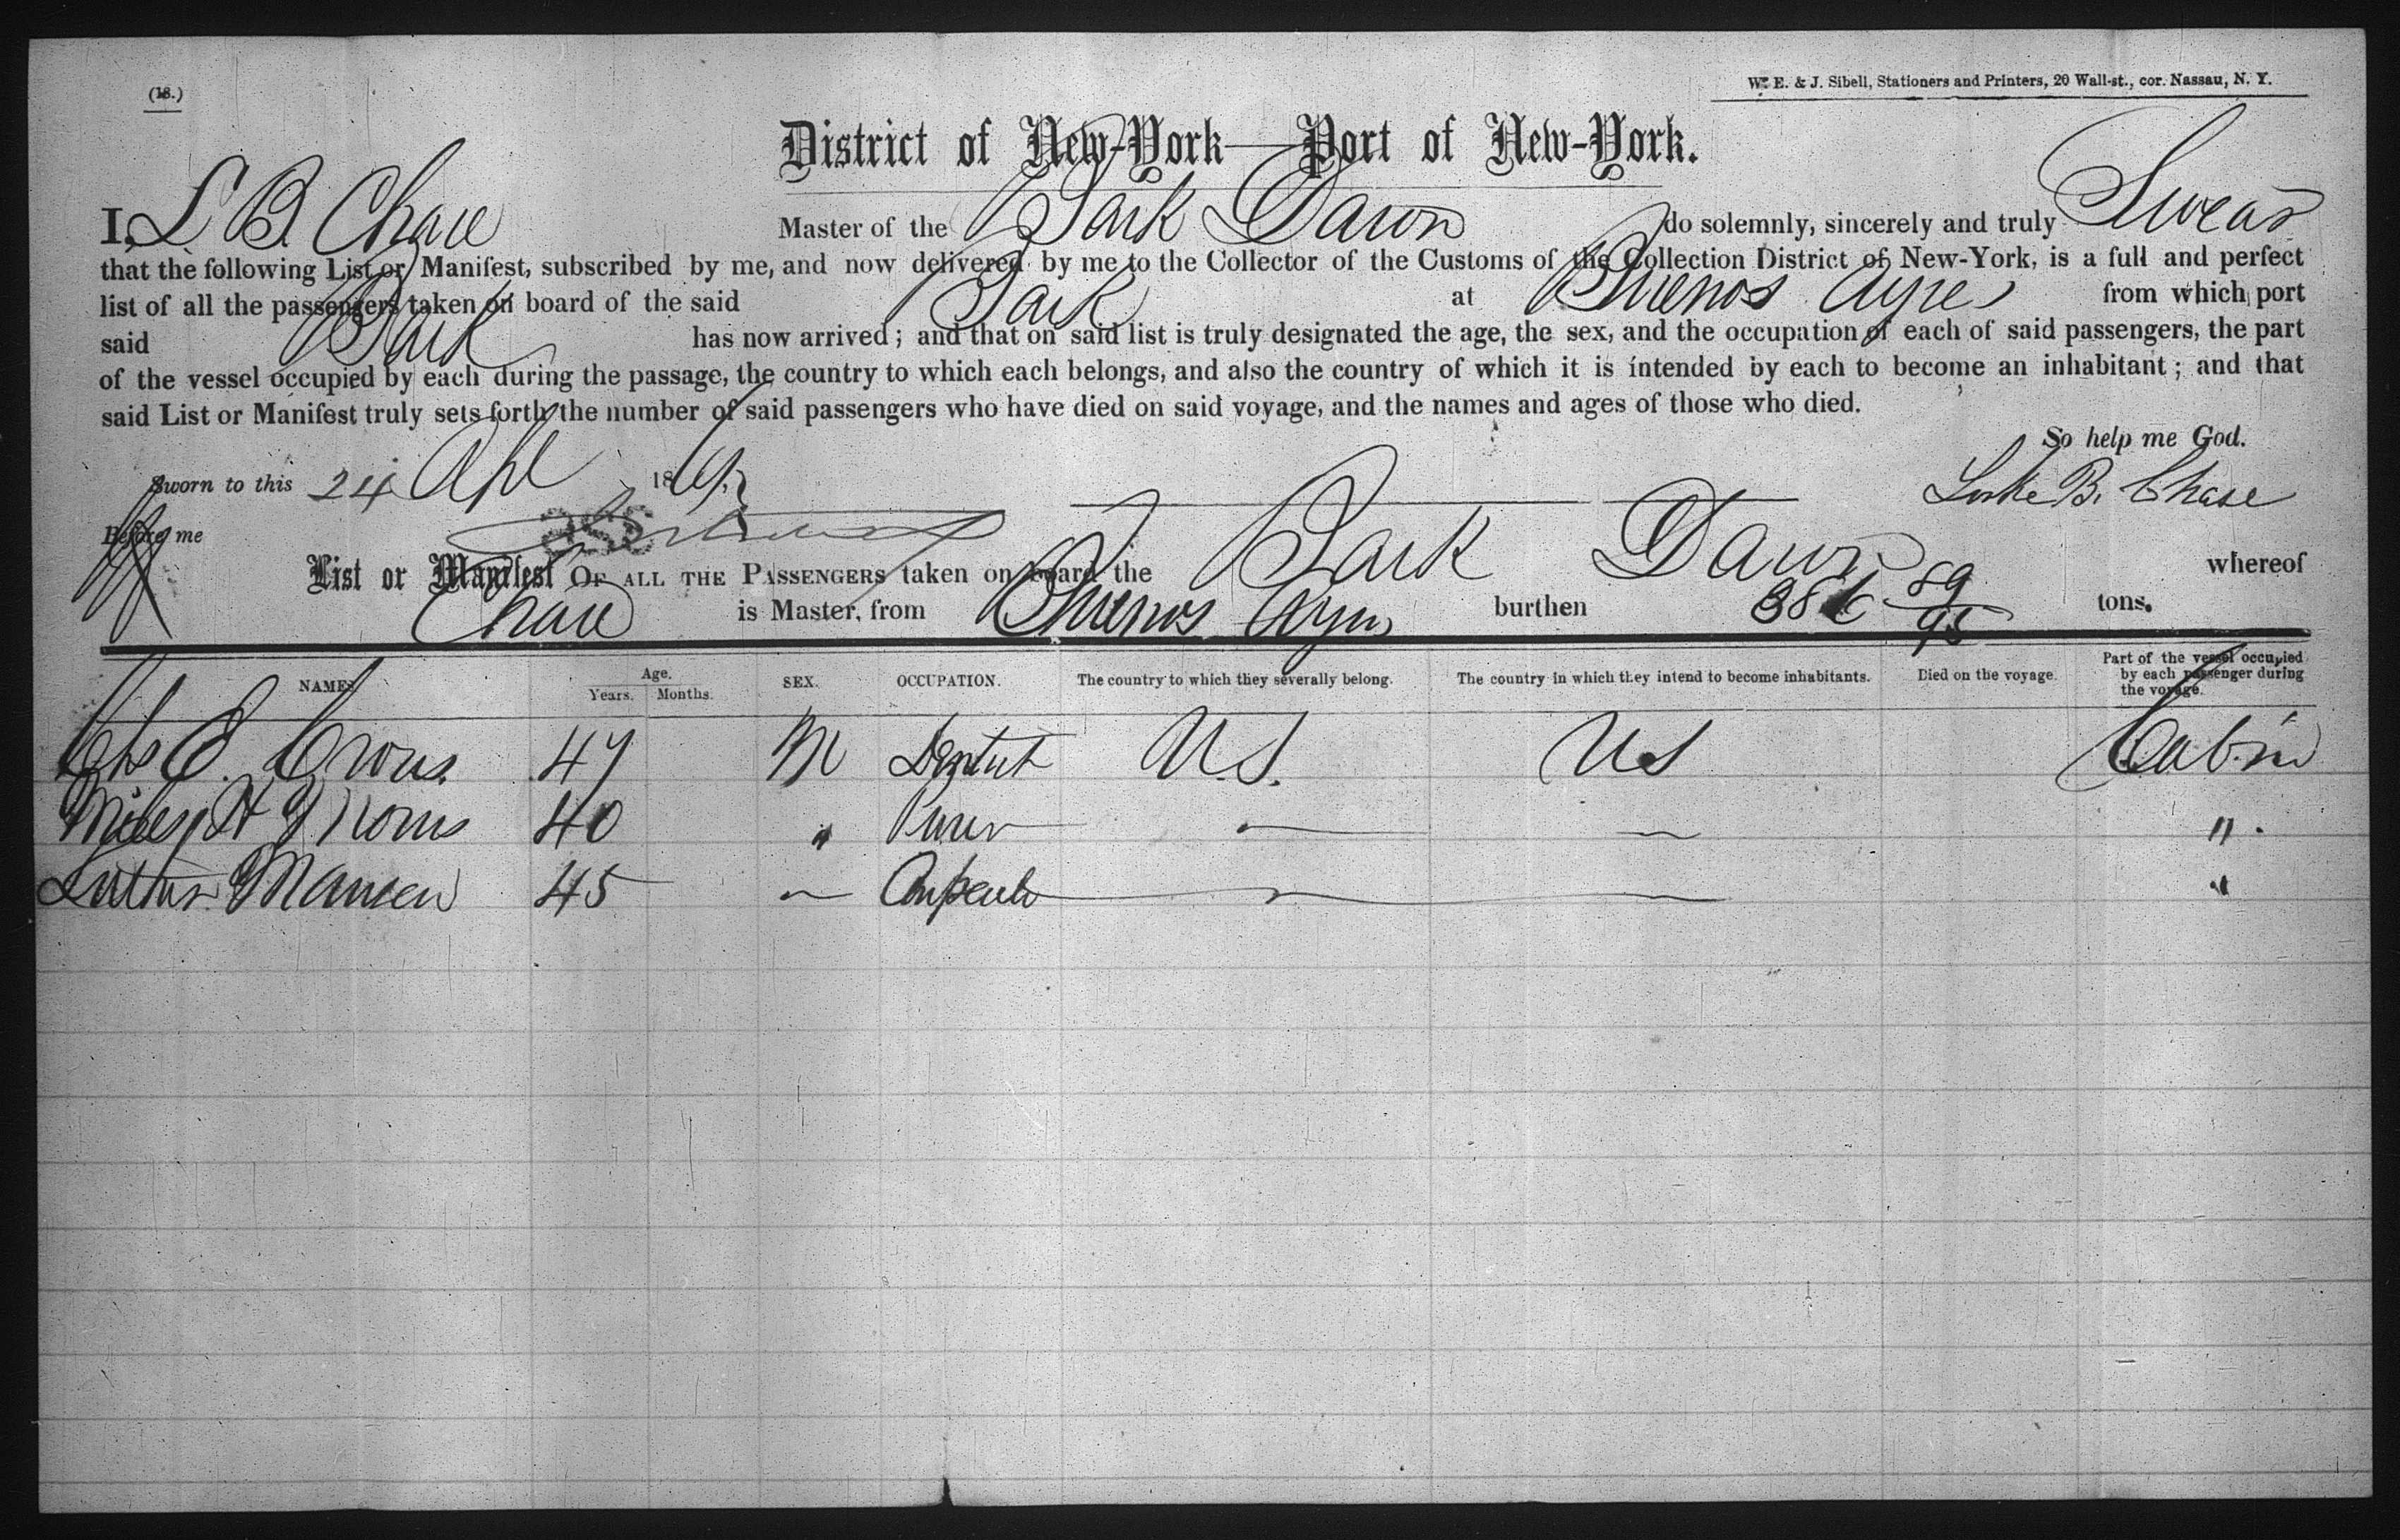 (18.)
Wm. E. & J. Sibell, Stationers and Printers, 20 Wall-st., cor. Nassau, N. Y.
District of New-York—Port of New-York.
I, L B. Chase Master of the Bark Dawn do solemnly, sincerely and truly Swear
that the following List or Manifest, subscribed by me, and now delivered by me to the Collector of the Customs of the Collection District of New-York, is a full and perfect
list of all the passengers taken on board of the said Bark at Buenos Ayres from which port
said Bark has now arrived; and that on said list is truly designated the age, the sex, and the occupation of each of said passengers, the part
of the vessel occupied by each during the passage, the country to which each belongs, and also the country of which it is intended by each to become an inhabitant; and that
said List or Manifest truly sets forth the number of said passengers who have died on said voyage, and the names and ages of those who died.
So help me God.
Sworn to this 24 Apl 186 Luke B. Chase
Before me
List or Manifest OF ALL THE PASSENGERS taken on board the Bark Dawn whereof
Chase is Master, from Buenos Ayres burthen 89/95 tons.
NAMES. Age. Years. Months. SEX. OCCUPATION. The country to which they severally belong. The country in which they intend to become inhabitants. Died on the voyage. Part of the vessel occupied by each passenger during the voyage.
Chs E. 47 M Dentist U.S. US Cabin
H 40 " " .
Luther 45 Carpenter "